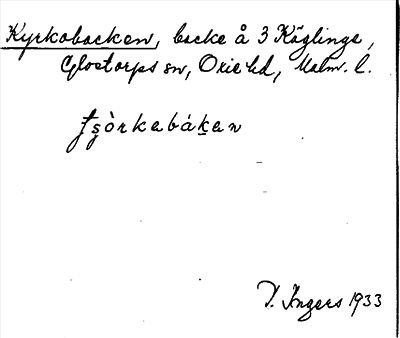 Kyrkobacken, backe å 3 Käglinge,
Glostorps sn, Oxie hd, Malm. l.
I. Ingers 1933